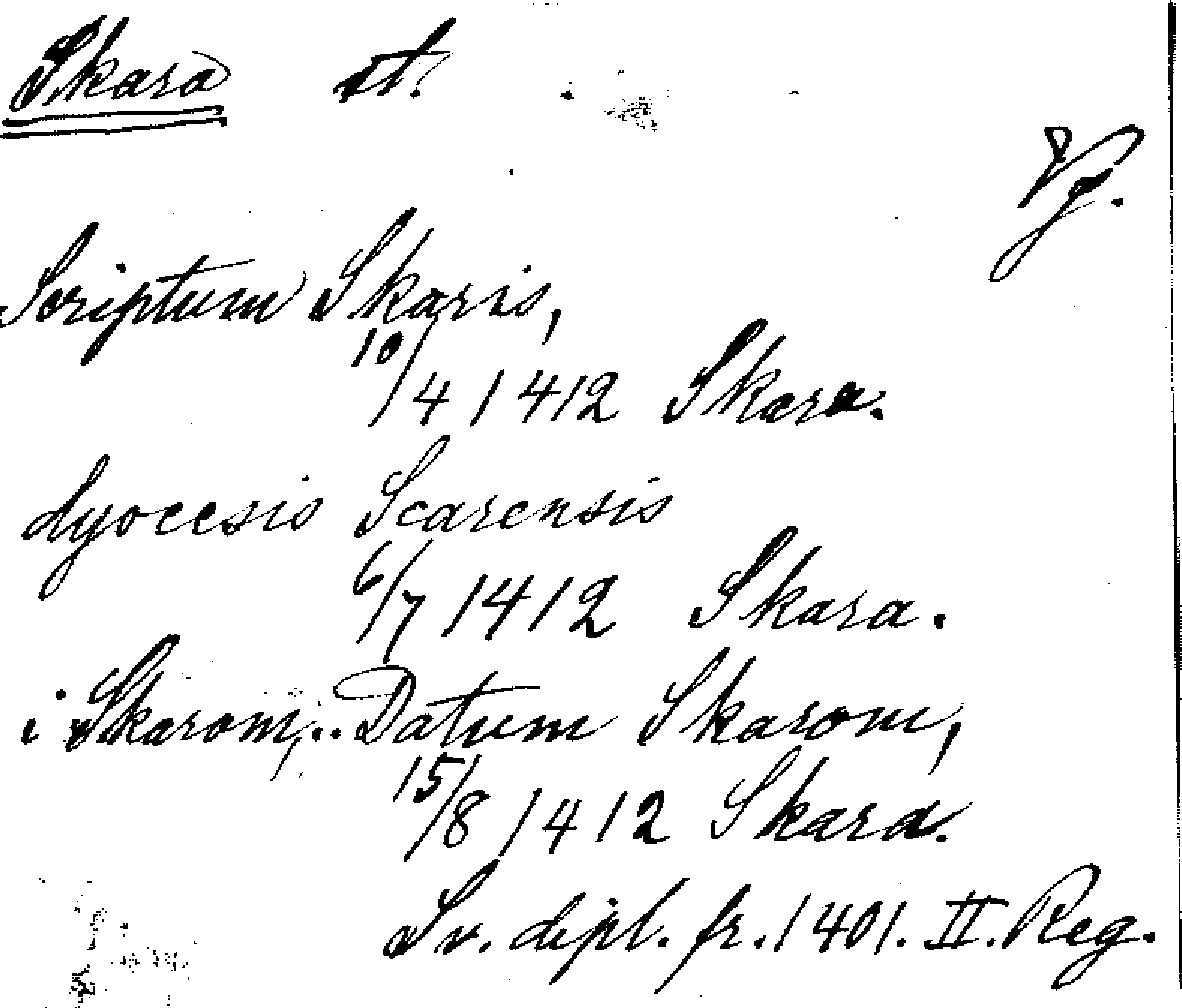 Skara st.
Vg.
Scriptum Skaris,
10/4 1412 Skara.
dyocesis Scarensis
6/7 1412 Skara.
i Skarom, .. Datum Skarom,
15/8 1412 Skara.
Sv. dipl. fr. 1401. II. Reg.